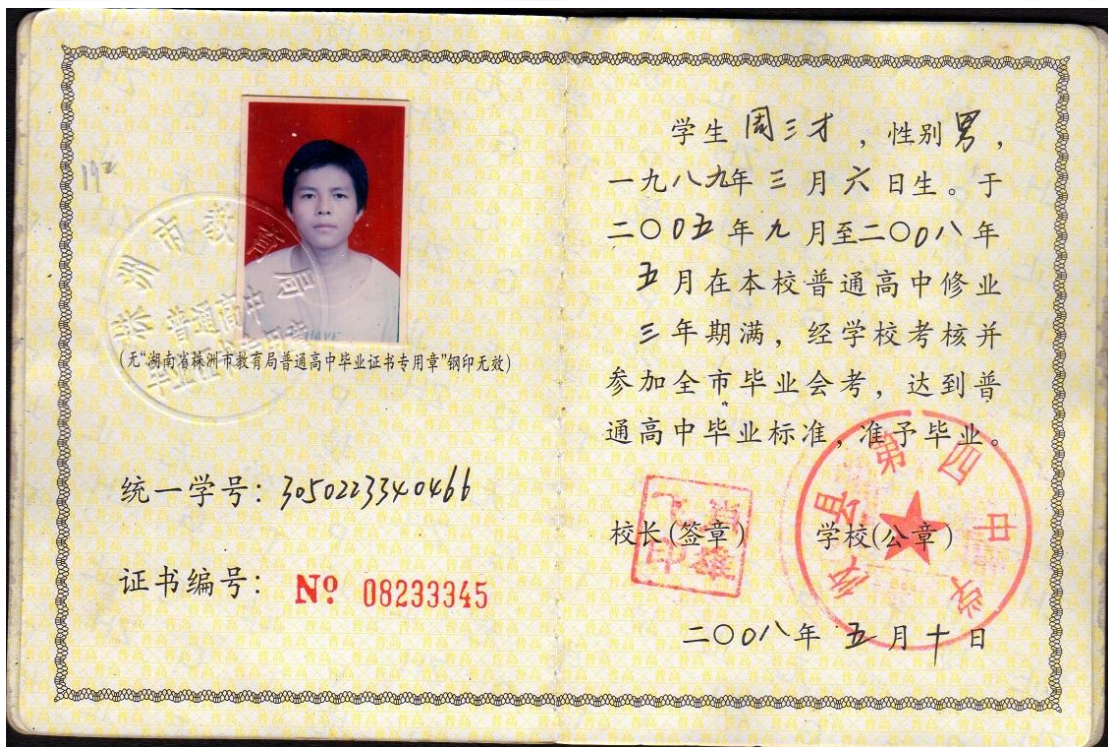 (无“湖南省株洲市教育局普通高中毕业证书专用章”钢印无效)
统一学号: 3050223340466
证书编号: Nº 08233345
学生 周三才 ，性别 男 ，
一九八九年 三 月 六 日生。于
二〇0五 年 九 月至二〇0八 年
五 月在本校普通高中修业
三 年期满，经学校考核并
参加全市毕业会考，达到普
通高中毕业标准，准予毕业。
校长(签章) 学校(公章)
二〇0八 年 五 月 十 日
攸县第四中学